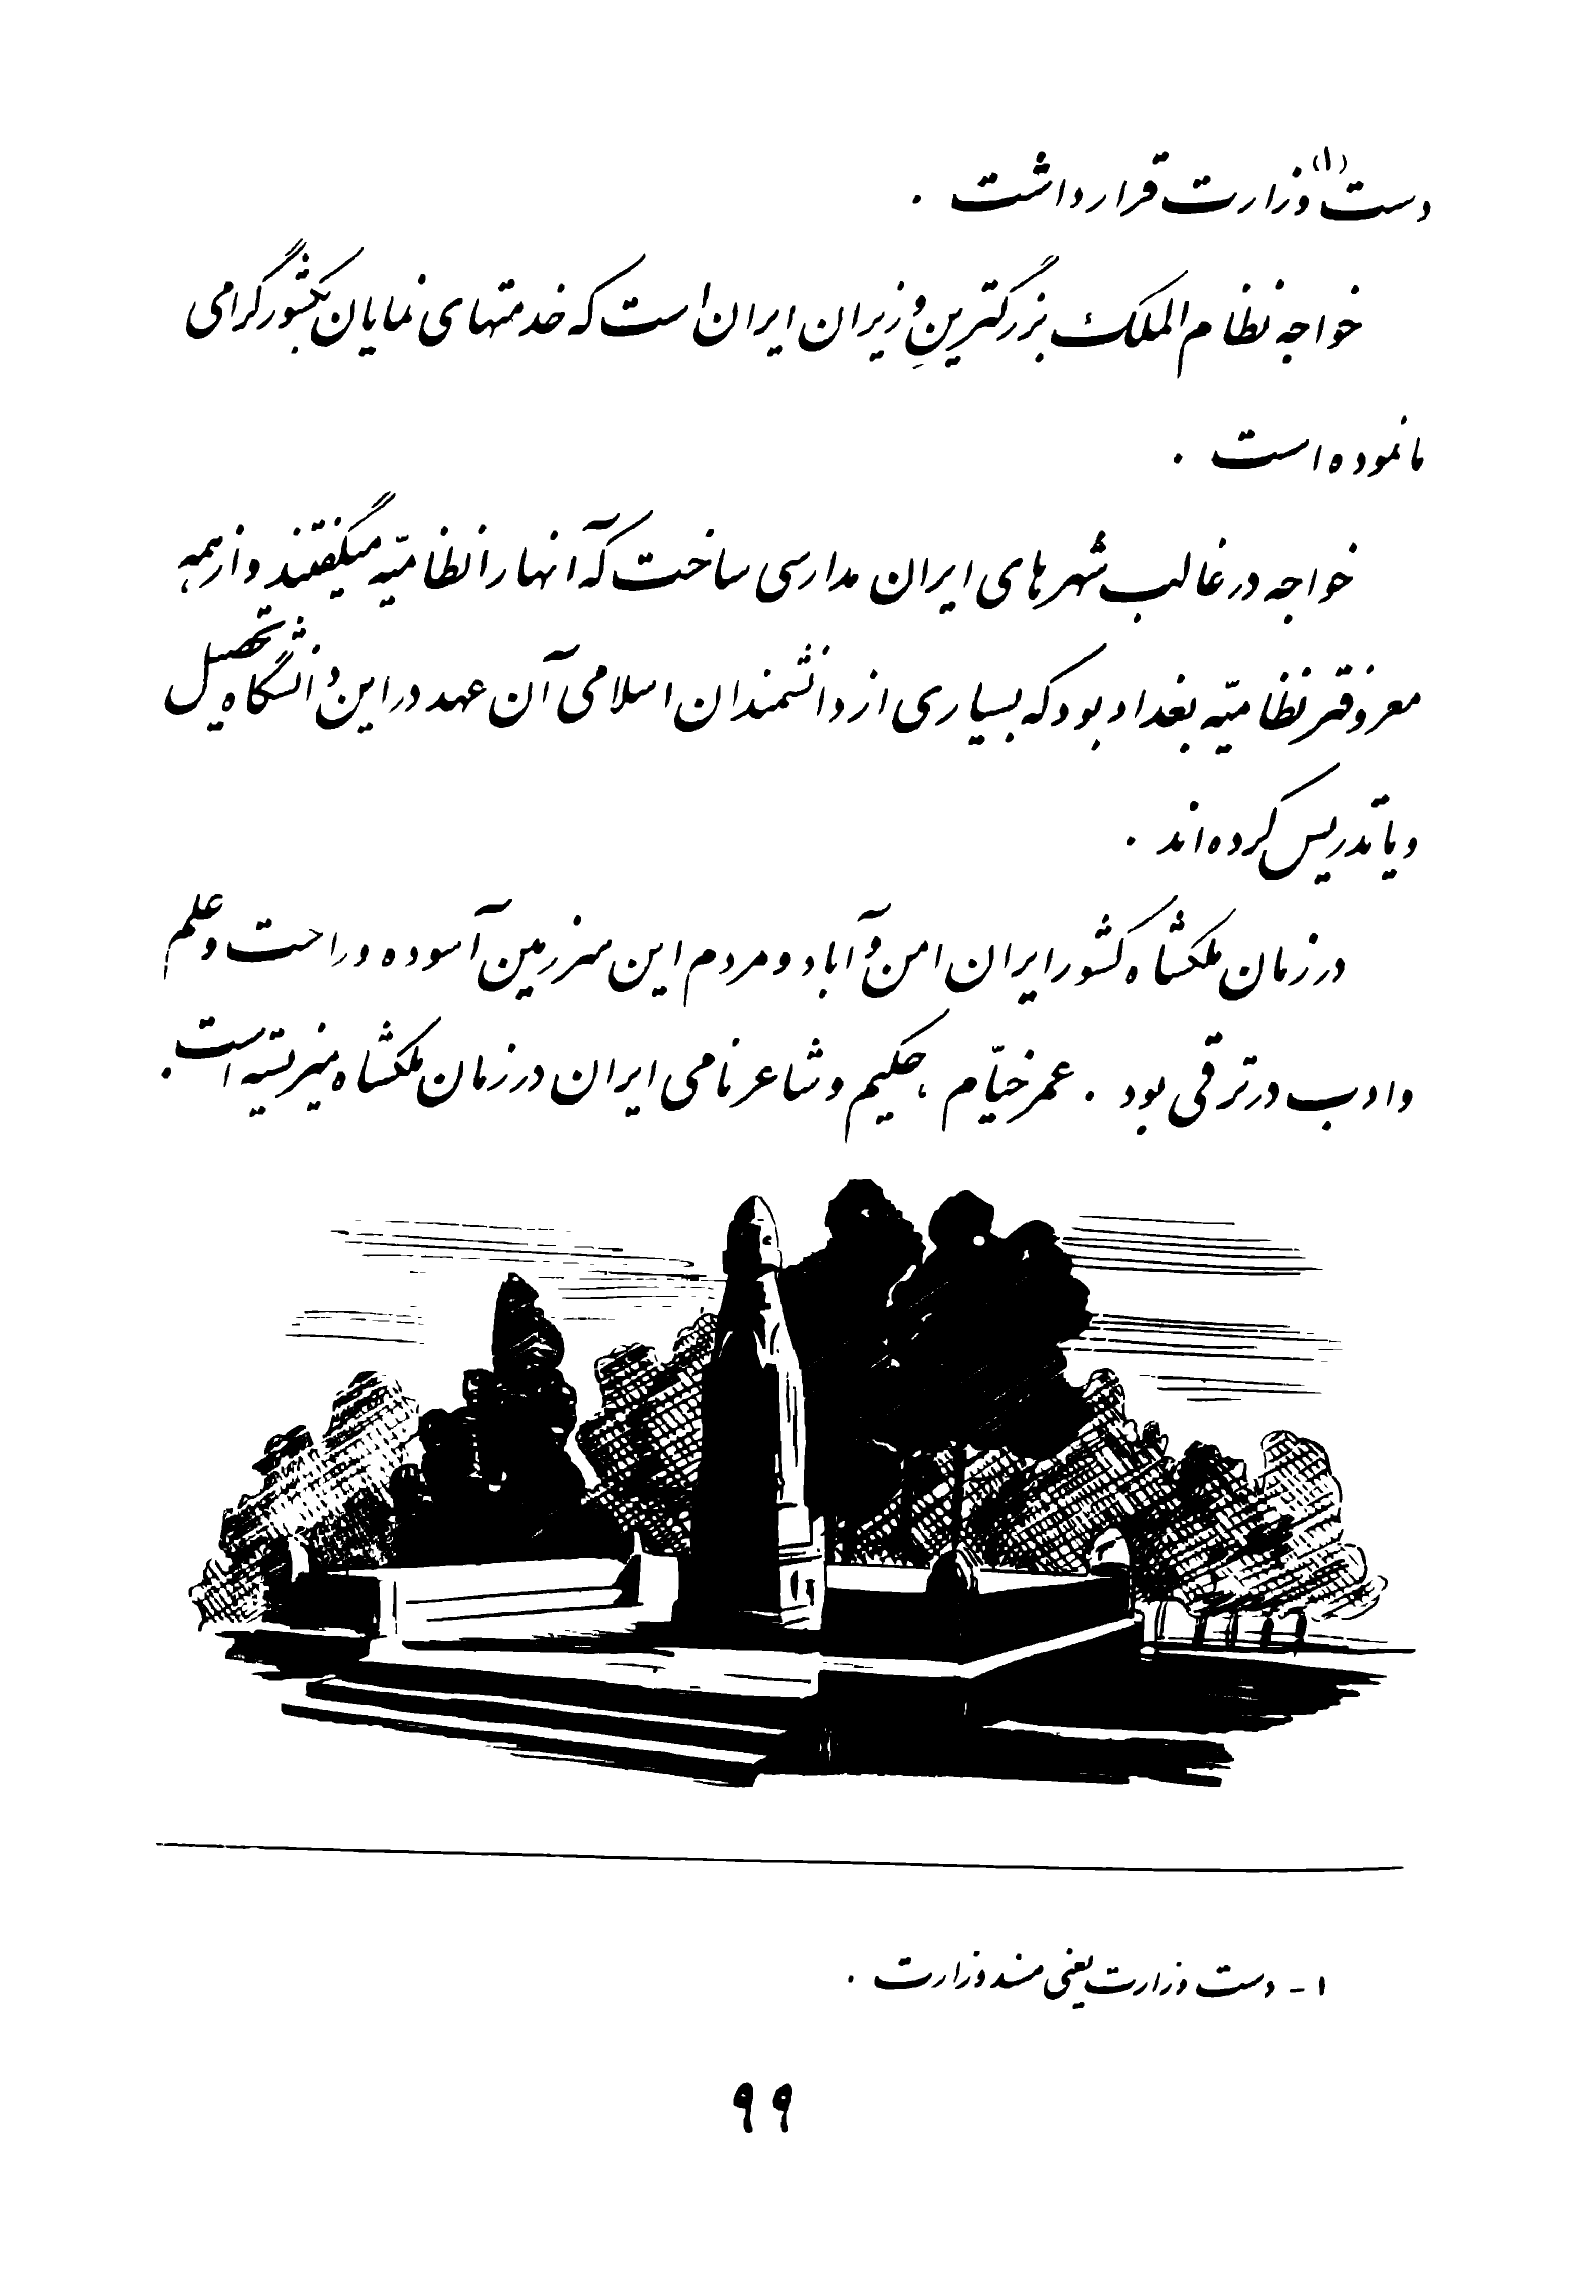 دست(۱) وزارت قرار داشت .
خواجه نظام الملک بزرگترینِ وزیران ایران است که خدمتهای نمایان بکشور گرامی
ما نموده است .
خواجه در غالب شهرهای ایران مدارسی ساخت که آنها را نظامیّه میگفتند و از همه
معروفتر نظامیّه بغداد بود که بسیاری از دانشمندان اسلامی آن عهد در این دانشگاه تحصیل
و یا تدریس کرده اند .
در زمان ملکشاه کشور ایران امن و آباد و مردم این سرزمین آسوده و راحت و علم
و ادب در ترقی بود . عمر خیّام ، حکیم و شاعر نامی ایران در زمان ملکشاه میزیسته است .
۱ - دست وزارت یعنی مسند وزارت .
۹۹